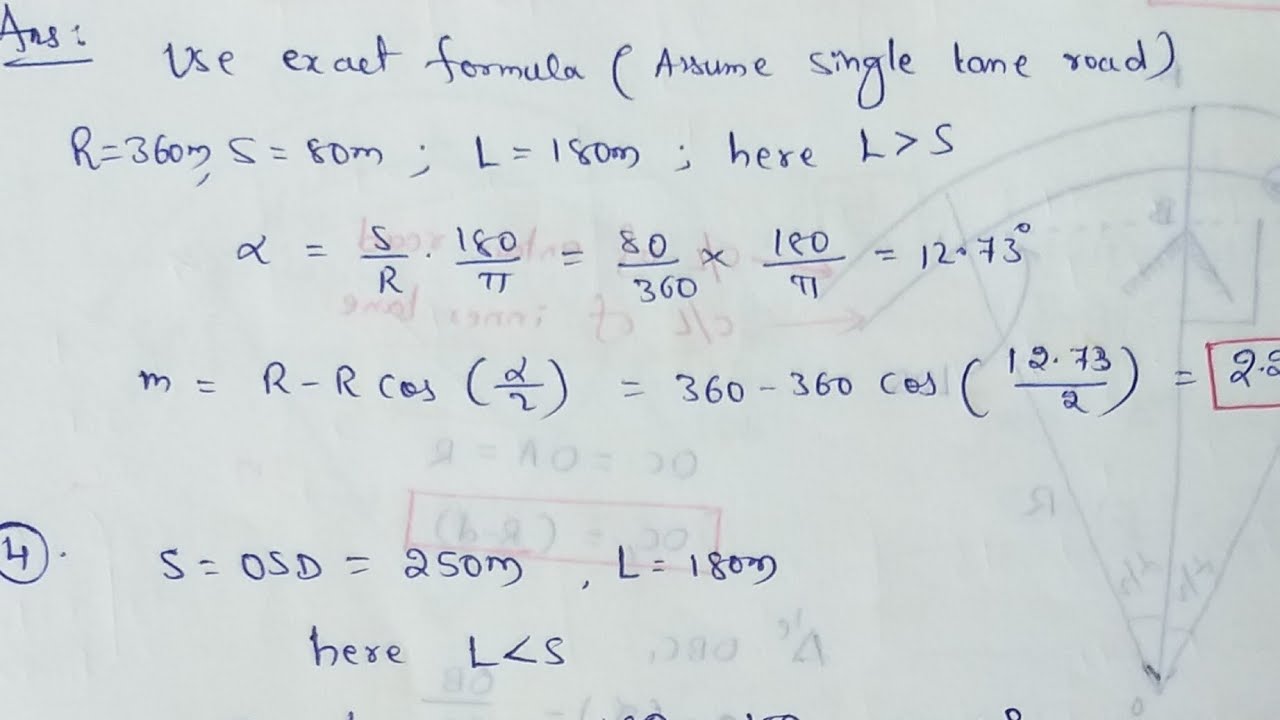 Ans:
Use exact formula (Assume single lane road)
R=360m, S = 80m ; L = 180m ; here L > S
α = S/R · 180/π = 80/360 × 180/π = 12.73°
m = R - R cos (α/2) = 360 - 360 cos (12.73/2) = 2.2
4. S = OSD = 250m , L = 180m
here L < S